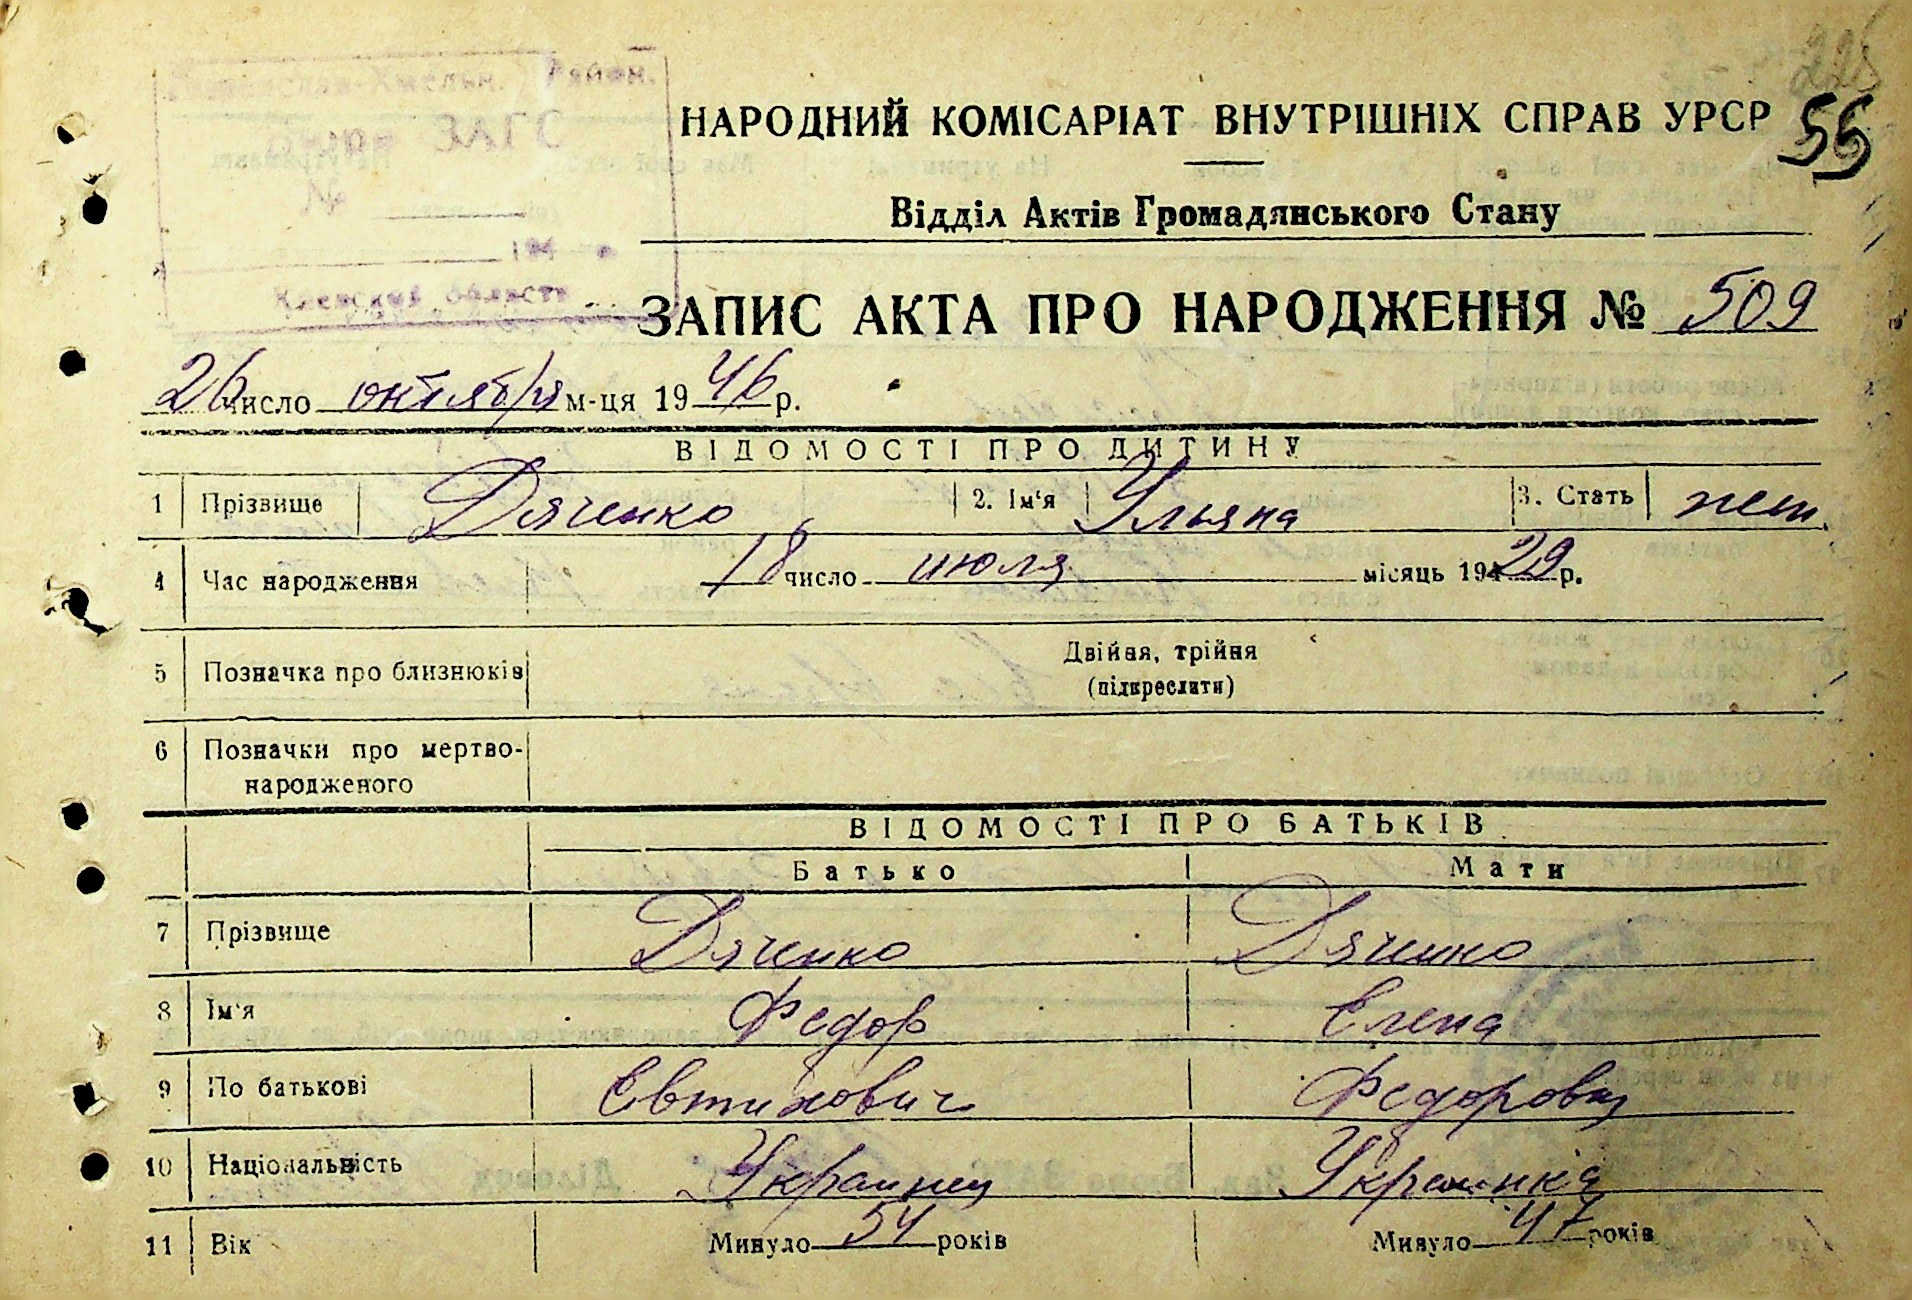 Район.
ЗАГС
№
194
Киевская область
226
55
НАРОДНИЙ КОМІСАРІАТ ВНУТРІШНІХ СПРАВ УРСР
Відділ Актів Громадянського Стану
ЗАПИС АКТА ПРО НАРОДЖЕННЯ № 509
26 число октября м-ця 1946 р.
ВІДОМОСТІ ПРО ДИТИНУ
1 Прізвище Дяченко 2. Ім'я Ульяна 3. Стать жен.
4 Час народження 18 число июля місяць 1929 р.
5 Позначка про близнюків Двійня, трійня
(підкреслити)
6 Позначки про мертво-
народженого
ВІДОМОСТІ ПРО БАТЬКІВ
Батько Мати
7 Прізвище Дяченко Дяченко
8 Ім'я Федор Елена
9 По батькові Евтихович Федоровна
10 Національність Украинец Украинка
11 Вік Минуло 54 років Минуло 47 років